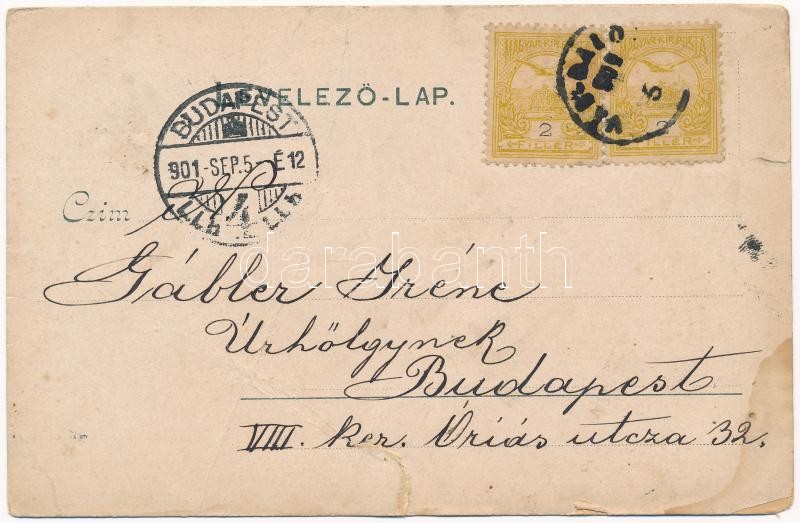 MAGYAR KIR. POSTA MAGYAR KIR. POSTA
2 2
FILLÉR FILLÉR
LEVELEZŐ-LAP.
BUDAPEST
901-SEP.5- É12
Czim
Gábler Iréne
Úrhölgynek
Budapest
VIII. ker. Óriás utcza 32.
darabanth